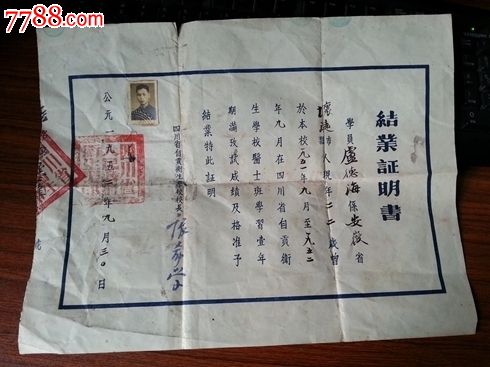 7788.com
結業証明書
學員盧德海係安徽省
懷遠市人現年二二歲曾
於本校一九五一年九月至一九五二
年九月在四川省自貢衛
生學校醫士班學習壹年
期滿攷試成績及格准予
結業特此証明
四川省自貢衛生學校校長
公元一九五二年九月三〇日